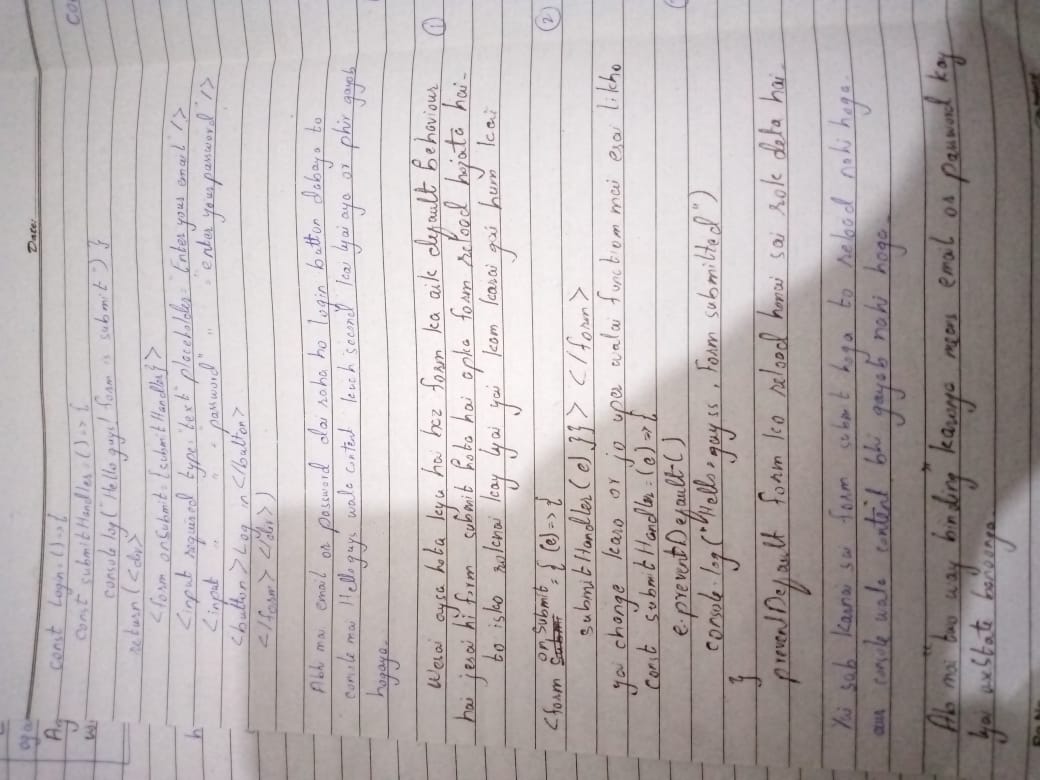 oga
Ag
wi
h
co
Date:
const Login = () => {
const submitHandler = () => {
console.log("Hello guys! form is submit") }
return (<div>
<form onSubmit={submitHandler}>
<input required type="text" placeholder="Enter your email"/>
<input " " password" " "enter your password"/>
<button>Log in</button>
</form> </div>)
Abhi mai email or password dai raha ho login button dabaya to
console mai Hello guys wala content kuch second kai lyai aya or phir gayab
hogaya.
Wesai aysa hota kyu hai bcz form ka aik default behaviour
hai jesai hi form submit hota hai apka form reload hojata hai.
to isko roknai kay lyai yai kam karai gai hum kai
1
<form onSubmit = { (e) => {
2
submitHandler(e) }}> </form>
yai change karo or jo uper walai function mai esai likho
const submitHandler = (e) => {
e.preventDefault()
console.log("Hello guyss, Form submitted")
}
preventDefault form ko reload honai sai rok deta hai.
Yai sab karnai sai form submit hoga to reload nahi hoga.
aur console wala content bhi gayab nahi hoga.
Ab mai "two way binding" karonga means email or password kay
lyai useState banaonga.